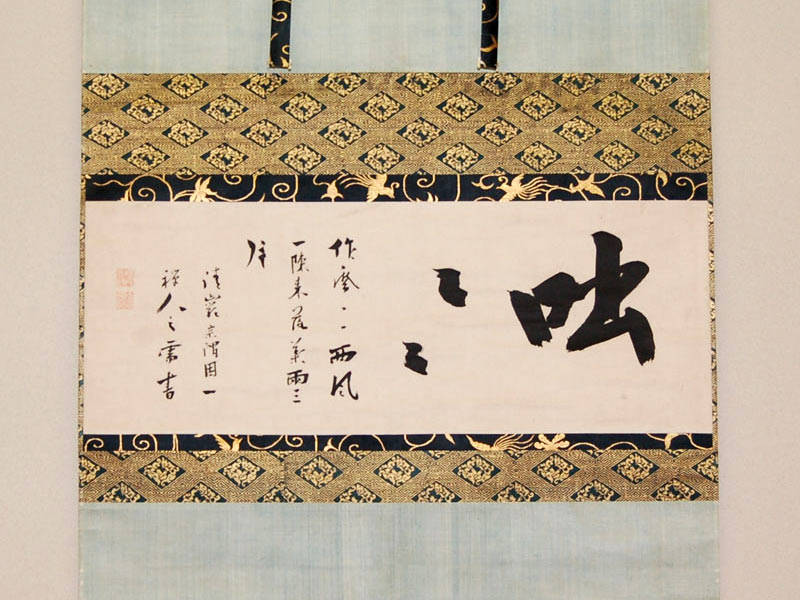 咄々々
作麼々々西風
一陣来落葉両三
片
清巌宗渭因一
禅人之需書